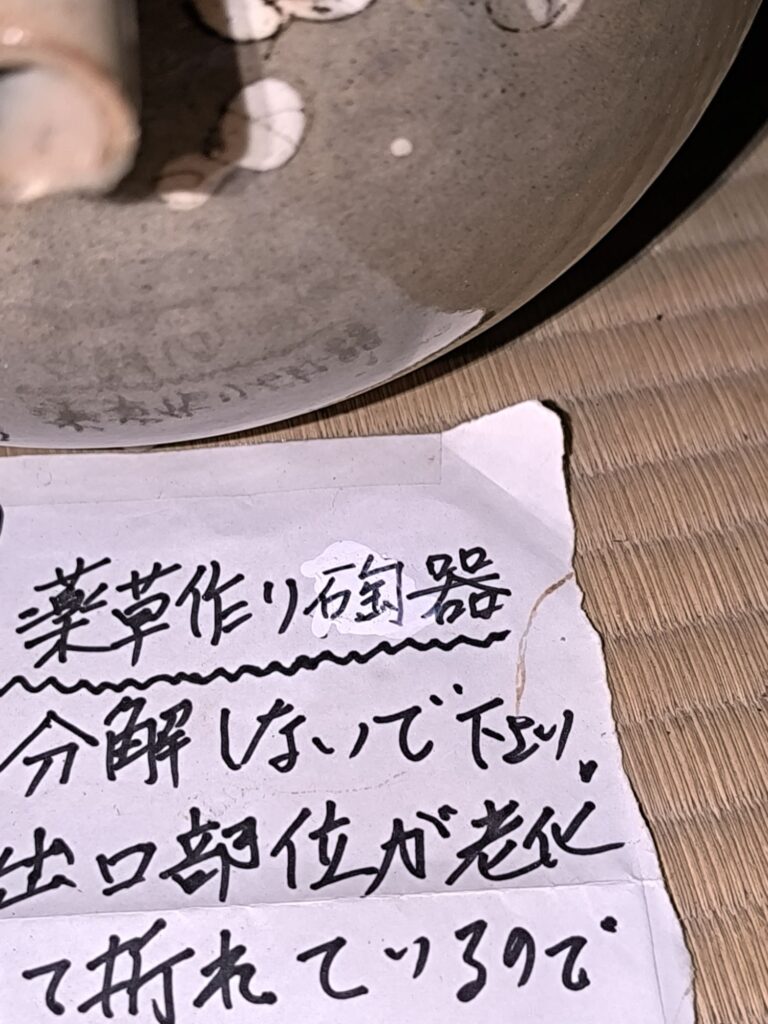 薬草作り陶器
分解しないで下さい。
出口部位が老化
て折れているので